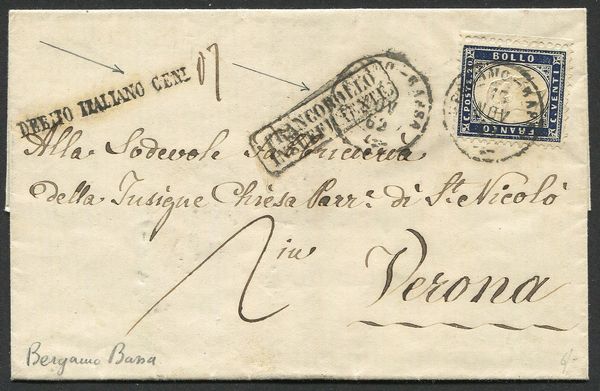 BOLLO
C. POSTE 20
C. VENTI
FRANCO
DEBITO ITALIANO CENT
FRANCOBOLLO
INSUFFICIENTE
BASSA
62
Alla Lodevole
della Insigne Chiesa Parr.ª di S.t Nicolò
in
2 Verona
Bergamo Bassa